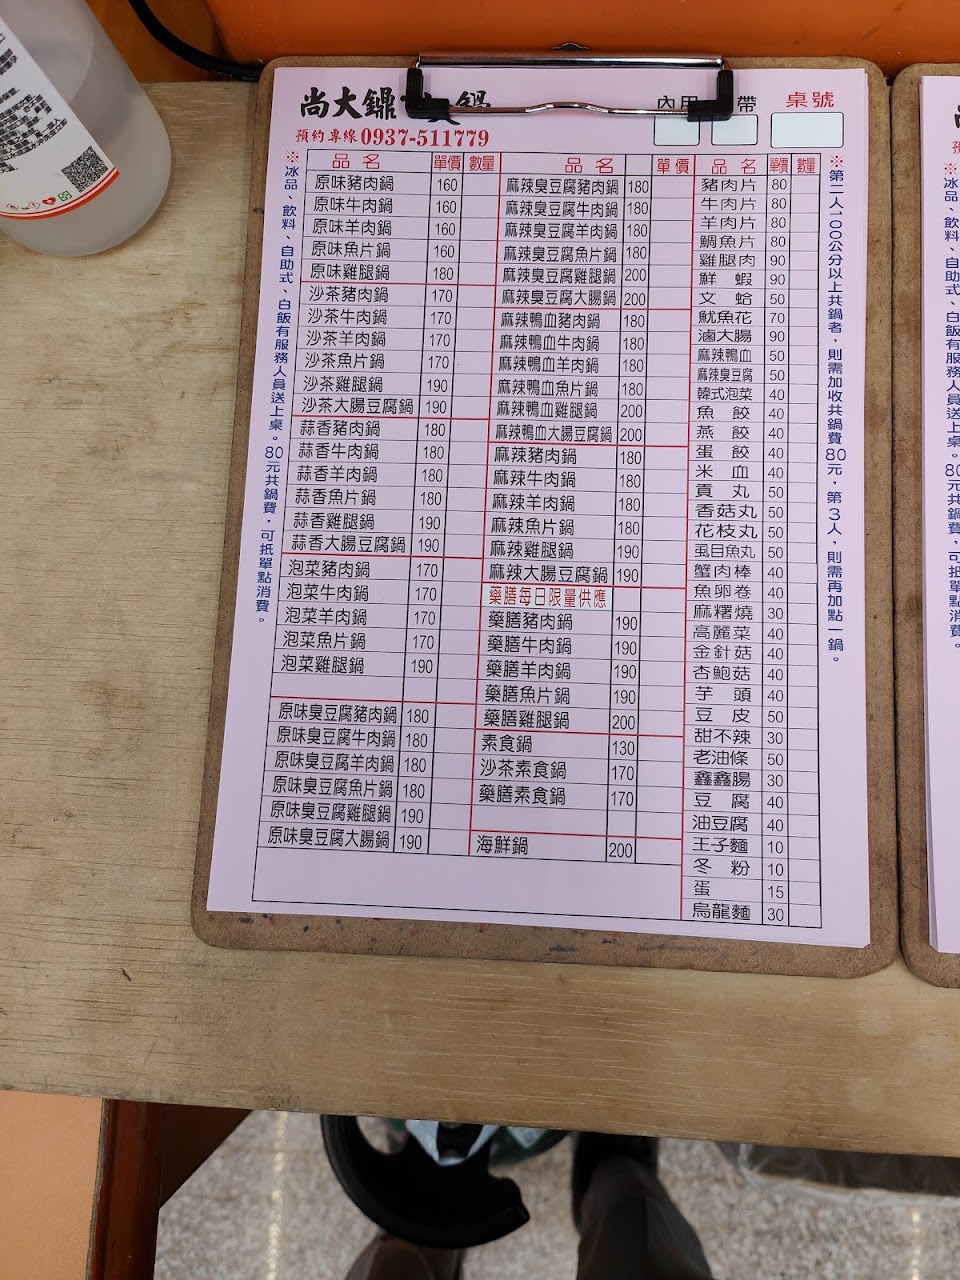 尚大鼎 鍋
內用 帶 桌號
預約專線0937-511779
※冰品、飲料、自助式、白飯有服務人員送上桌。80元共鍋費，可抵單點消費。
品名 單價 數量
原味豬肉鍋 160
原味牛肉鍋 160
原味羊肉鍋 160
原味魚片鍋 160
原味雞腿鍋 180
沙茶豬肉鍋 170
沙茶牛肉鍋 170
沙茶羊肉鍋 170
沙茶魚片鍋 170
沙茶雞腿鍋 190
沙茶大腸豆腐鍋 190
蒜香豬肉鍋 180
蒜香牛肉鍋 180
蒜香羊肉鍋 180
蒜香魚片鍋 180
蒜香雞腿鍋 190
蒜香大腸豆腐鍋 190
泡菜豬肉鍋 170
泡菜牛肉鍋 170
泡菜羊肉鍋 170
泡菜魚片鍋 170
泡菜雞腿鍋 190
原味臭豆腐豬肉鍋 180
原味臭豆腐牛肉鍋 180
原味臭豆腐羊肉鍋 180
原味臭豆腐魚片鍋 180
原味臭豆腐雞腿鍋 190
原味臭豆腐大腸鍋 190
品名 單價
麻辣臭豆腐豬肉鍋 180
麻辣臭豆腐牛肉鍋 180
麻辣臭豆腐羊肉鍋 180
麻辣臭豆腐魚片鍋 180
麻辣臭豆腐雞腿鍋 200
麻辣臭豆腐大腸鍋 200
麻辣鴨血豬肉鍋 180
麻辣鴨血牛肉鍋 180
麻辣鴨血羊肉鍋 180
麻辣鴨血魚片鍋 180
麻辣鴨血雞腿鍋 200
麻辣鴨血大腸豆腐鍋 200
麻辣豬肉鍋 180
麻辣牛肉鍋 180
麻辣羊肉鍋 180
麻辣魚片鍋 180
麻辣雞腿鍋 190
麻辣大腸豆腐鍋 190
藥膳每日限量供應
藥膳豬肉鍋 190
藥膳牛肉鍋 190
藥膳羊肉鍋 190
藥膳魚片鍋 190
藥膳雞腿鍋 200
素食鍋 130
沙茶素食鍋 170
藥膳素食鍋 170
海鮮鍋 200
品名 單價 數量
豬肉片 80
牛肉片 80
羊肉片 80
鯛魚片 80
雞腿肉 90
鮮蝦 90
文蛤 50
魷魚花 70
滷大腸 90
麻辣鴨血 50
麻辣臭豆腐 50
韓式泡菜 40
魚餃 40
燕餃 40
蛋餃 40
米血 40
貢丸 50
香菇丸 50
花枝丸 50
虱目魚丸 50
蟹肉棒 40
魚卵卷 40
麻糬燒 30
高麗菜 40
金針菇 40
杏鮑菇 40
芋頭 40
豆皮 50
甜不辣 30
老油條 50
鑫鑫腸 30
豆腐 40
油豆腐 40
王子麵 10
冬粉 10
蛋 15
烏龍麵 30
※第二人100公分以上共鍋者，則需加收共鍋費80元，第3人，則需再加點一鍋。